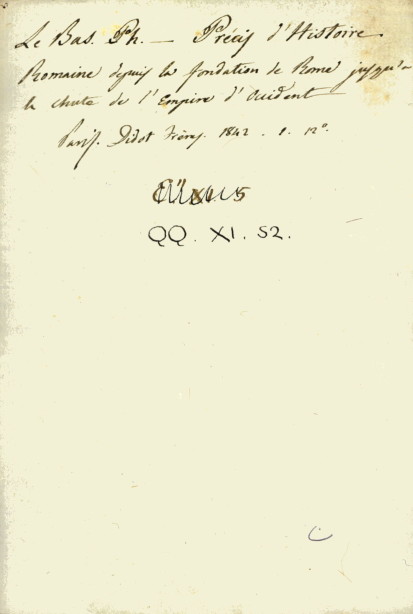 Le Bas. Ph. — Précis d'Histoire
Romaine depuis la fondation de Rome jusqu'a
la chute de l'Empire d'Occident
Paris. Didot frères. 1842. 1. 12°.
QQ. XI. 52.